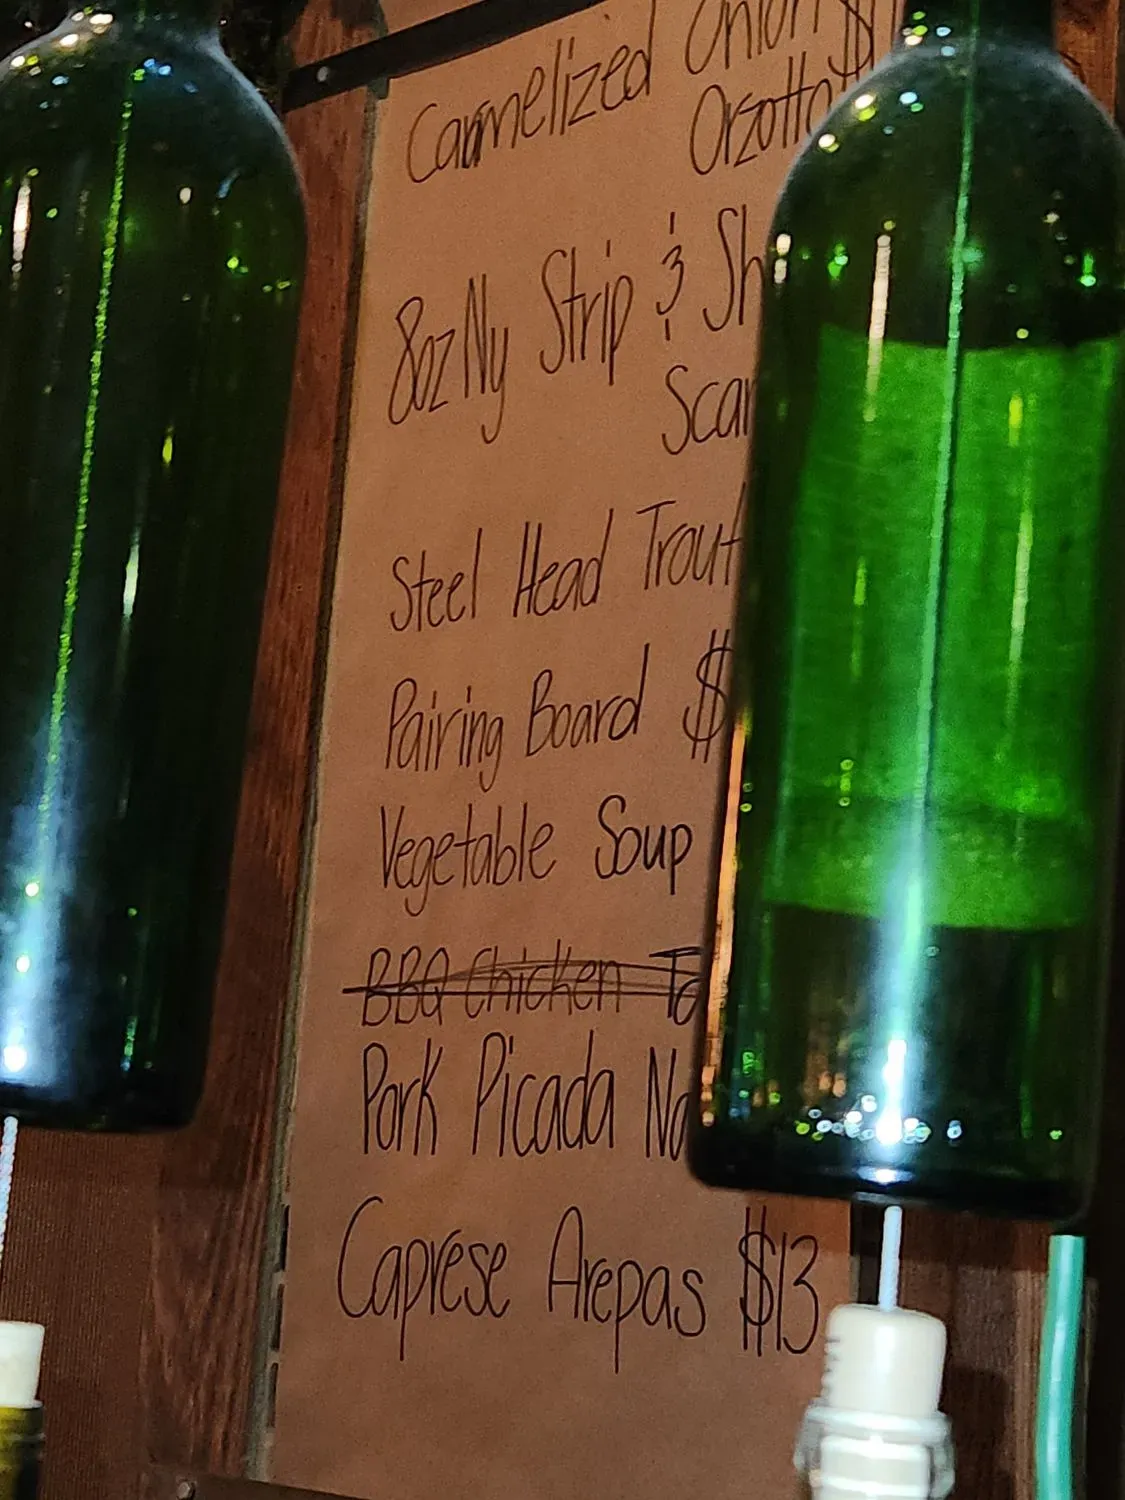 Carmelized Onion $1
Orzotto
8oz Ny Strip & Sh
Scam
Steel Head Trout
Pairing Board $
Vegetable Soup
BBQ Chicken Ta
Pork Picada Na
Caprese Arepas $13